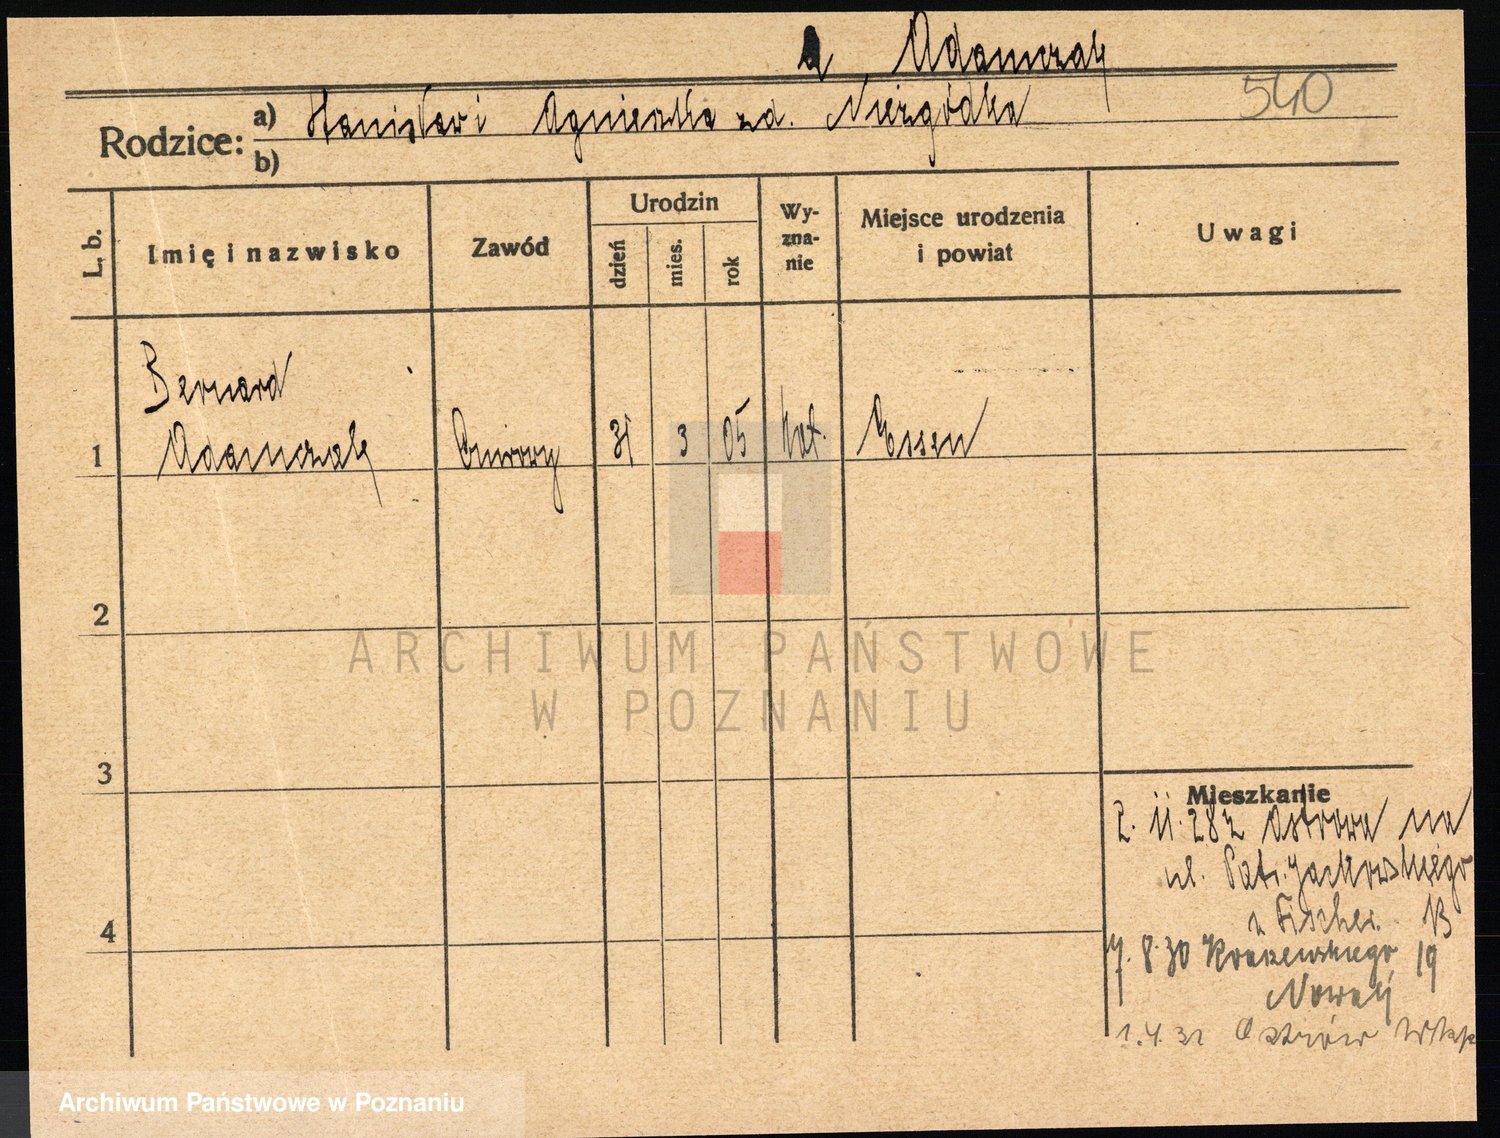 a Adamczak
540
Rodzice: a) Stanisław i Agnieszka zd. Niezgódka
b)
L. b.
Imię i nazwisko
Zawód
Urodzin
dzień
mies.
rok
Wy-
zna-
nie
Miejsce urodzenia
i powiat
Uwagi
Bernard
1 Adamczak 31 3 05 kat. Essen
2
3
4
Mieszkanie
2. 11. 28 z Ostrowa na
ul. Patr. Jackowskiego
z Fischer.
7. 8. 30 Kraszewskiego 19
Nowak
1. 4. 32 Ostrów Wlkp
ARCHIWUM PAŃSTWOWE
W POZNANIU
Archiwum Państwowe w Poznaniu